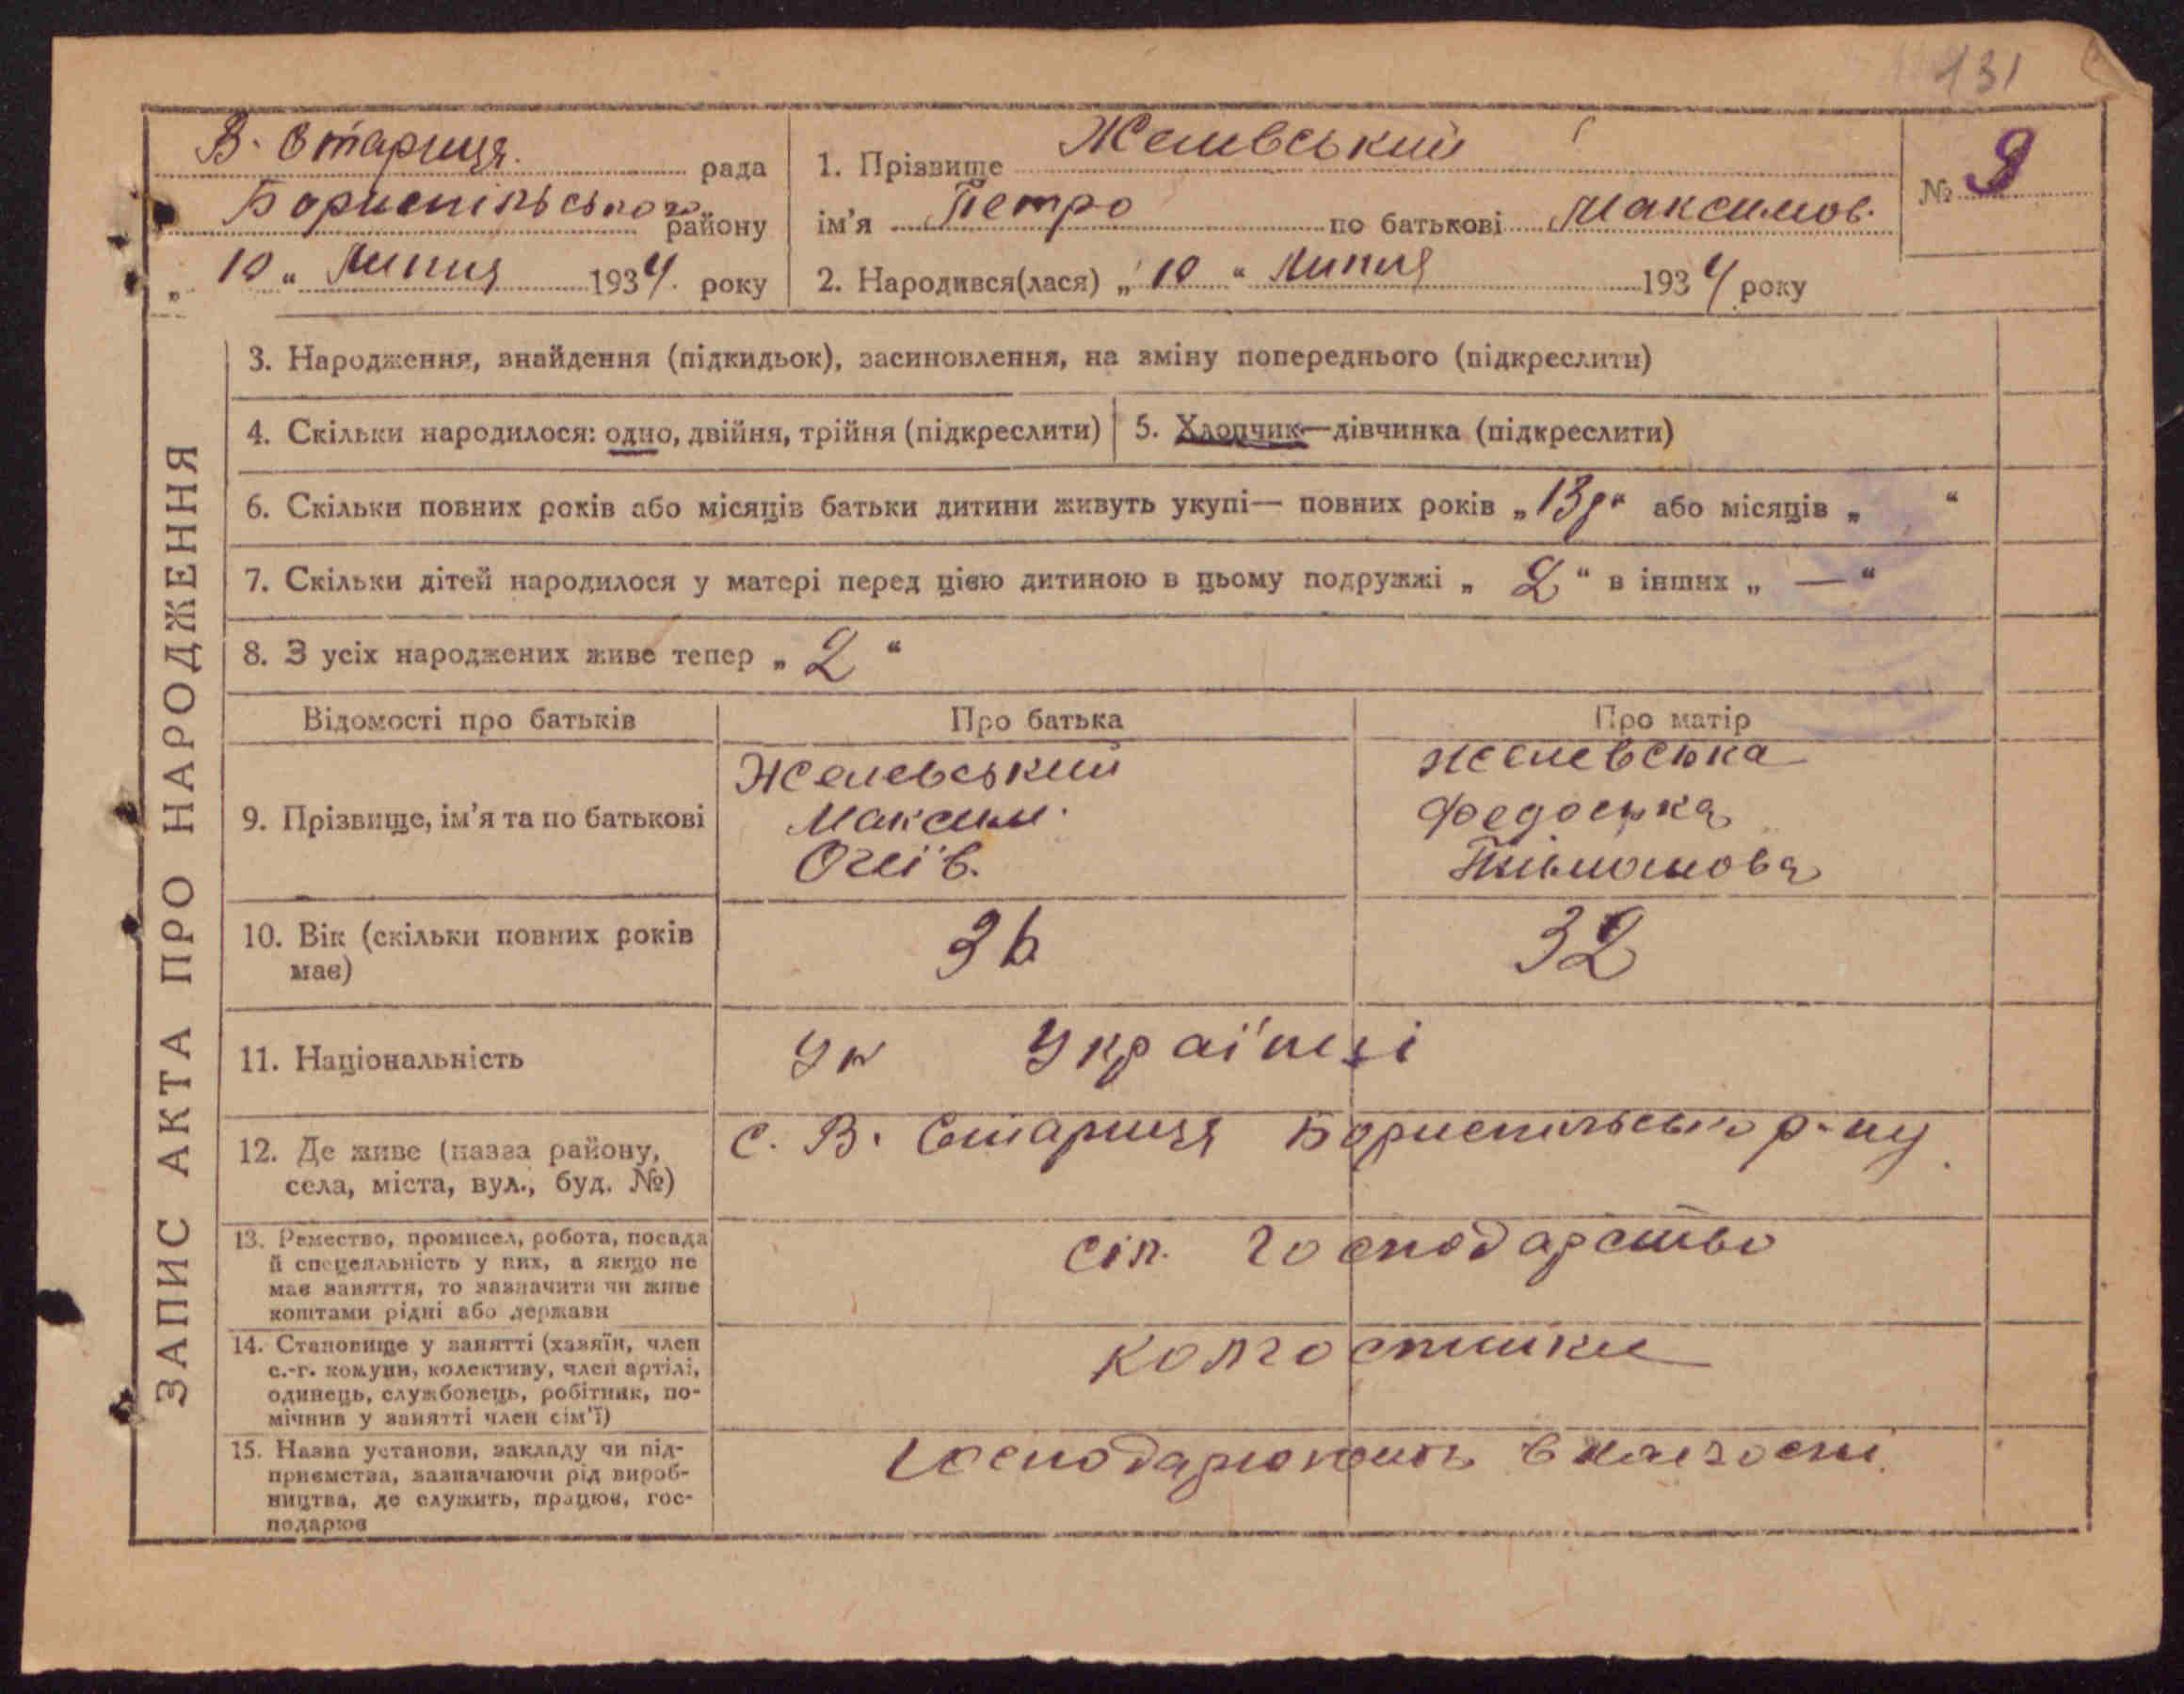 131
В. Стариця рада
Бориспільського району
„ 10 “ Липня 1934. року
1. Прізвище Желевський
ім’я Петро по батькові Максимов.
№ 9
2. Народився(лася) „ 10 “ Липня 1934 року
ЗАПИС АКТА ПРО НАРОДЖЕННЯ
3. Народження, знайдення (підкидьок), засиновлення, на зміну попереднього (підкреслити)
4. Скільки народилося: одно, двійня, трійня (підкреслити) 5. Хлопчик—дівчинка (підкреслити)
6. Скільки повних років або місяців батьки дитини живуть укупі— повних років „13р“ або місяців „ “
7. Скільки дітей народилося у матері перед цією дитиною в цьому подружжі „ 2 “ в інших „ — “
8. З усіх народжених живе тепер „ 2 “
Відомості про батьків Про батька Про матір
9. Прізвище, ім’я та по батькові
Желевський
Максим
Олеїв.
Желевська
Федоська
10. Вік (скільки повних років
має)
36 32
11. Національність Ук Українці
12. Де живе (назва району,
села, міста, вул., буд. №)
с. В. Стариця Бориспільсько р-ну
13. Ремество, промисел, робота, посада
й спеціяльність у них, а якщо не
має заняття, то зазначити чи живе
коштами рідні або держави
сіл. господарство
14. Становище у занятті (хазяїн, член
с.-г. комуни, колективу, член артілі,
одинець, службовець, робітник, по-
мічнив у занятті член сім’ї)
колгоспники
15. Назва установи, закладу чи під-
приємства, зазначаючи рід вироб-
ництва, де служить, працює, гос-
подарює
господарюють в колгоспі.